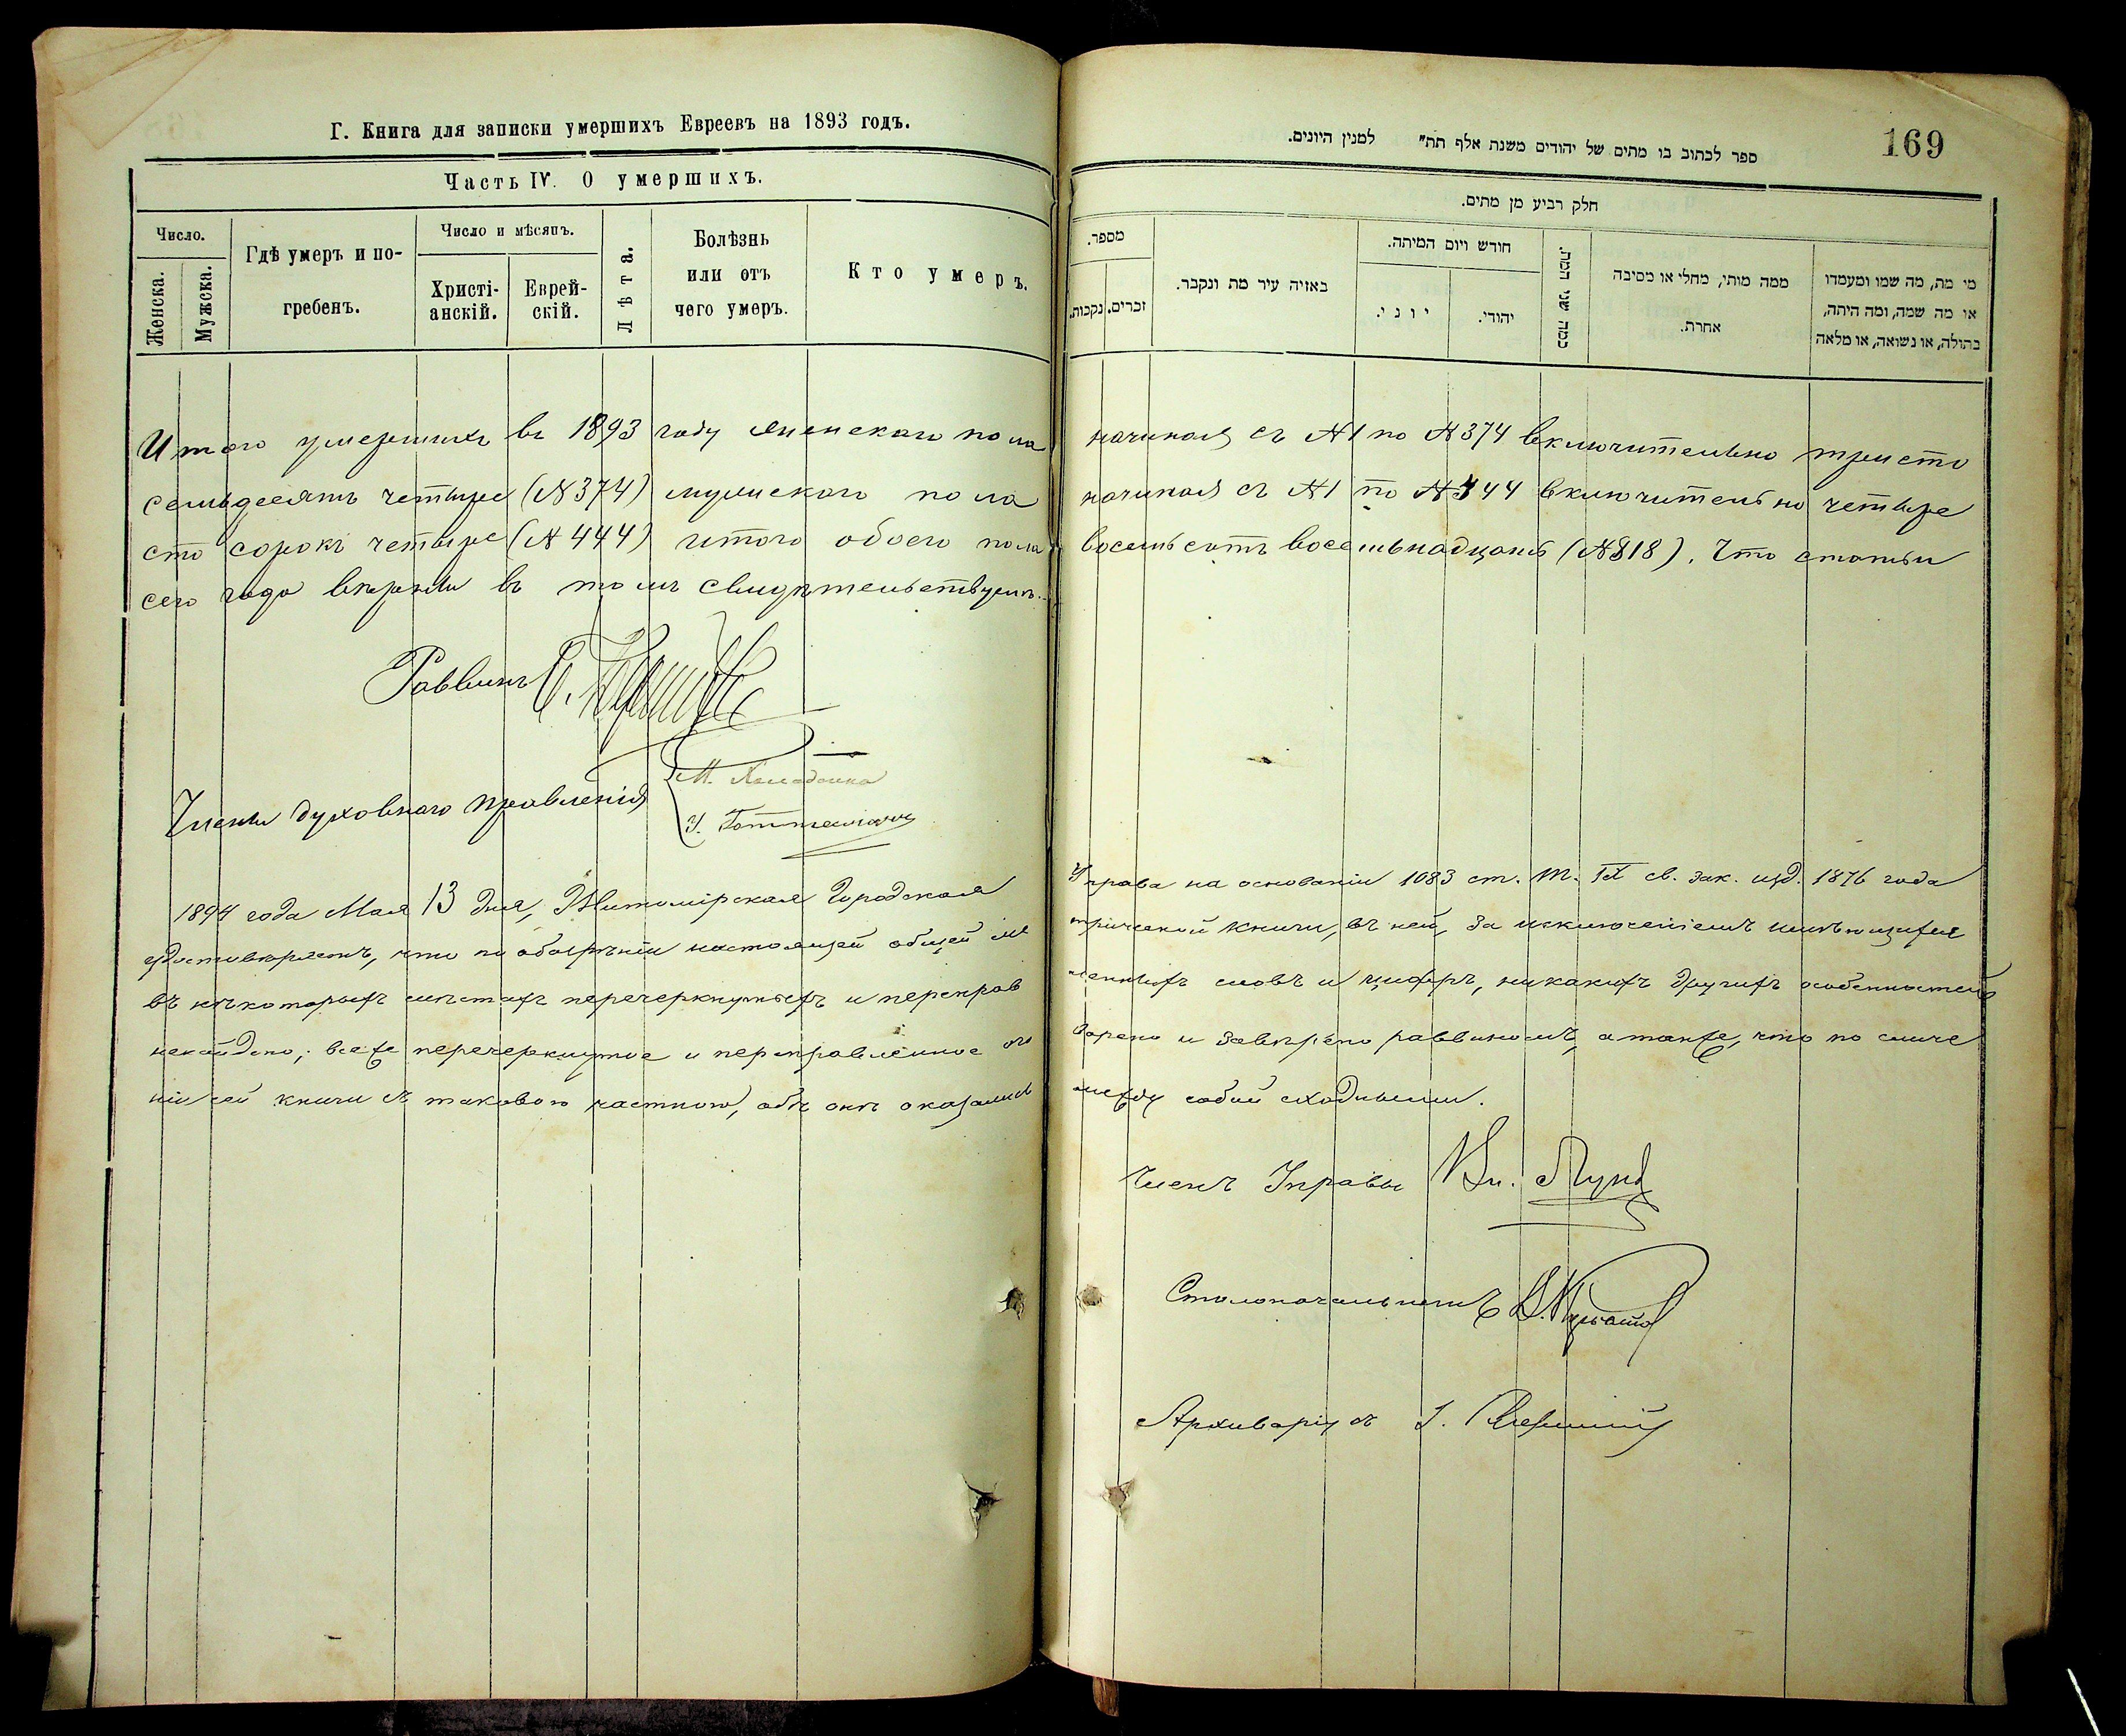 Г. Книга для записки умершихъ Евреевъ на 1893 годъ.
Часть IV. О умершихъ.
Число.
Женска.
Мужска.
Гдѣ умеръ и по-
гребенъ.
Число и мѣсяцъ.
Христі-
анскій.
Еврей-
скій.
Лѣта.
Болѣзнь
или отъ
чего умеръ.
Кто умеръ.
169
ספר לכתוב בו מתים של יהודים משנת אלף תת״ למנין היונים.
חלק רביע מן מתים.
מספר.
נקבות.
זכרים.
באזיה עיר מת ונקבר.
חודש ויום המיתה.
יוני.
יהודי.
כמה שני המת.
ממה מותי, מחלי או מסיבה
אחרת.
מי מת, מה שמו ומעמדו
או מה שמה, ומה היתה,
בתולה, או נשואה, או מלאה
Итого умершихъ въ 1893 году женскаго пола начиная съ №1 по №374 включительно триста
семьдесятъ четыре (№374) мужскаго пола начиная съ №1 по №444 включительно четыре
сто сорокъ четыре (№444) итого обоего пола восемьсотъ восемьнадцать (№818). Что статьи
сего года вѣрны въ томъ свидѣтельствуемъ.
Раввинъ
Члены духовнаго правленія
1894 года Мая 13 дня, Житомірская Городская Управа на основаніи 1083 ст. т. IX св. зак. изд. 1876 года
удостовѣряетъ, что по обозрѣніи настоящей общей ме трической книги, въ ней, за исключеніемъ
въ нѣкоторыхъ мѣстахъ перечеркнутыхъ и переправ ленныхъ словъ и цифръ, никакихъ другихъ особенностей
ненайдено; все же перечеркнутое и переправленное ого ворено и завѣрено раввиномъ, а также, что по сличе
ніи сей книги съ таковою частною, обѣ онѣ оказались между собой сходными.
Членъ Управы
Столоначальникъ
Архиваріусъ